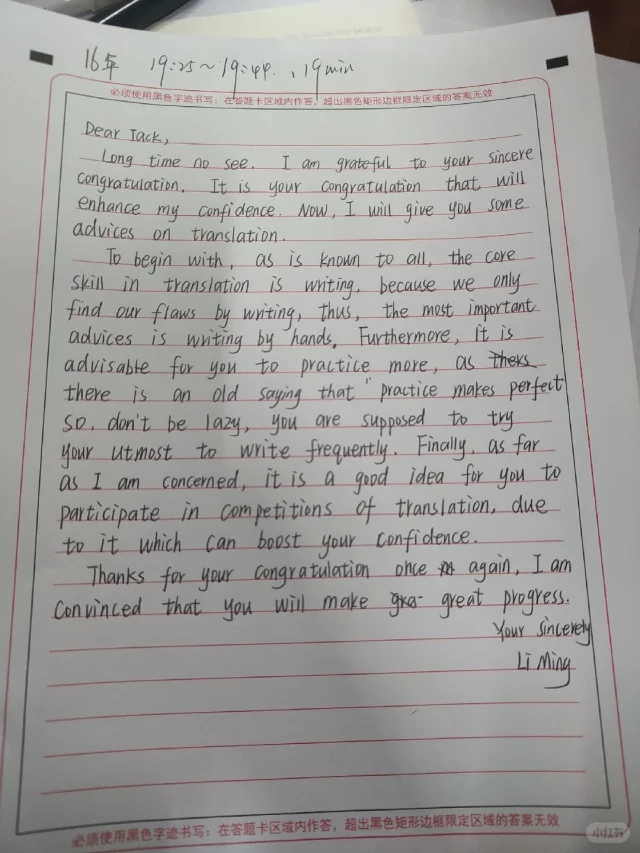 16年 19:25~19:44. , 19min
必须使用黑色字迹书写：在答题卡区域内作答，超出黑色矩形边框限定区域的答案无效
Dear Jack,
Long time no see. I am grateful to your sincere
congratulation. It is your congratulation that will
enhance my confidence. Now, I will give you some
advices on translation.
To begin with, as is known to all, the core
skill in translation is writing, because we only
find our flaws by writing, thus, the most important
advices is writing by hands. Furthermore, it is
advisable for you to practice more, as
there is an old saying that "practice makes perfect
so, don't be lazy, you are supposed to try
your utmost to write frequently. Finally, as far
as I am concerned, it is a good idea for you to
participate in competitions of translation, due
to it which can boost your confidence.
Thanks for your congratulation once again, I am
convinced that you will make great progress.
Your sincerely
Li Ming
必须使用黑色字迹书写：在答题卡区域内作答，超出黑色矩形边框限定区域的答案无效
小红书